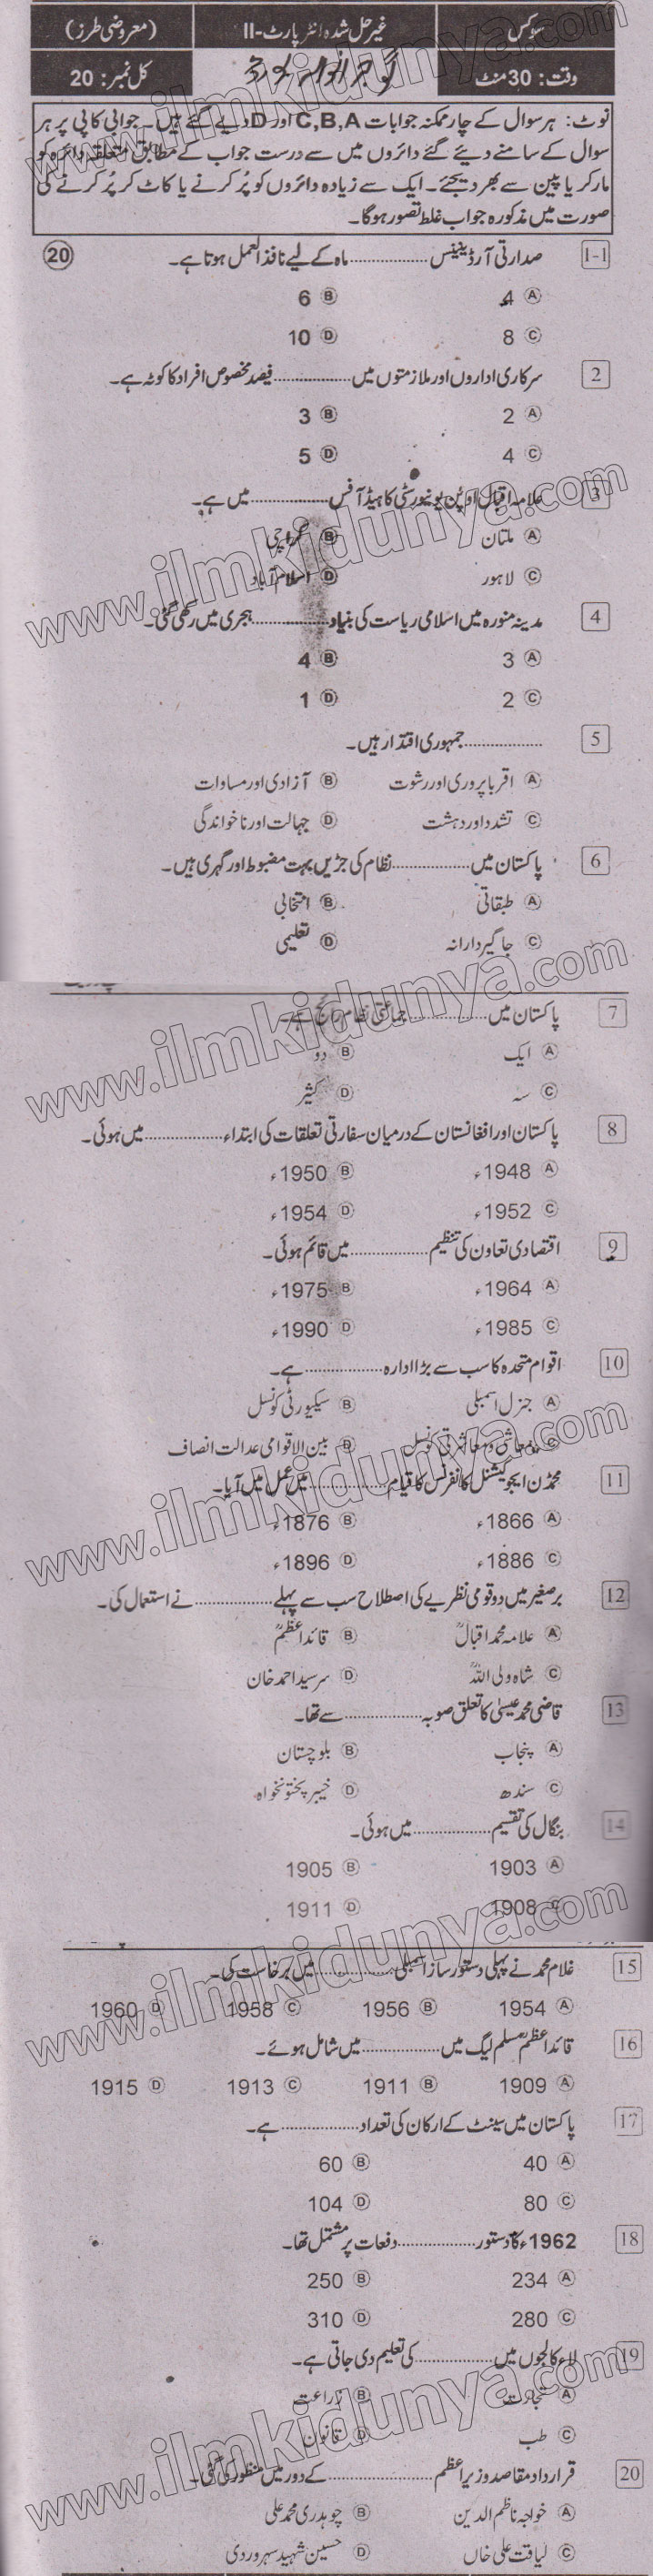 سوکس
غیر حل شدہ انٹر پارٹ-II
(معروضی طرز)
وقت: 30 منٹ
گوجرانوالہ بورڈ
کل نمبر: 20
نوٹ: ہر سوال کے چار ممکنہ جوابات C,B,A اور D دیے گئے ہیں۔ جوابی کاپی پر ہر
سوال کے سامنے دیئے گئے دائروں میں سے درست جواب کے مطابق متعلقہ دائرہ کو
مارکر یا پین سے بھر دیجئے۔ ایک سے زیادہ دائروں کو پُر کرنے یا کاٹ کر پُر کرنے کی
صورت میں مذکورہ جواب غلط تصور ہوگا۔
1-1 صدارتی آرڈیننس .................. ماہ کے لیے نافذ العمل ہوتا ہے۔ (20)
A 4 B 6
C 8 D 10
2 سرکاری اداروں اور ملازمتوں میں .................. فیصد مخصوص افراد کا کوٹہ ہے۔
A 2 B 3
C 4 D 5
3 علامہ اقبال اوپن یونیورسٹی کا ہیڈ آفس .................. میں ہے۔
A ملتان B کراچی
C لاہور D اسلام آباد
4 مدینہ منورہ میں اسلامی ریاست کی بنیاد .................. ہجری میں رکھی گئی۔
A 3 B 4
C 2 D 1
5 .................. جمہوری اقتدار ہیں۔
A اقربا پروری اور رشوت B آزادی اور مساوات
C تشدد اور دہشت D جہالت اور ناخواندگی
6 پاکستان میں .................. نظام کی جڑیں بہت مضبوط اور گہری ہیں۔
A طبقاتی B انتخابی
C جاگیردارانہ D تعلیمی
7 پاکستان میں .................. جماعتی نظام رائج ہے۔
A ایک B دو
C سہ D کثیر
8 پاکستان اور افغانستان کے درمیان سفارتی تعلقات کی ابتداء .................. میں ہوئی۔
A 1948ء B 1950ء
C 1952ء D 1954ء
9 اقتصادی تعاون کی تنظیم .................. میں قائم ہوئی۔
A 1964ء B 1975ء
C 1985ء D 1990ء
10 اقوام متحدہ کا سب سے بڑا ادارہ .................. ہے۔
A جنرل اسمبلی B سیکیورٹی کونسل
C معاشی و معاشرتی کونسل D بین الاقوامی عدالت انصاف
11 محمڈن ایجوکیشنل کانفرنس کا قیام .................. میں عمل میں آیا۔
A 1866ء B 1876ء
C 1886ء D 1896ء
12 برصغیر میں دو قومی نظریے کی اصطلاح سب سے پہلے .................. نے استعمال کی۔
A علامہ محمد اقبالؒ B قائداعظمؒ
C شاہ ولی اللہؒ D سرسید احمد خان
13 قاضی محمد عیسیٰ کا تعلق صوبہ .................. سے تھا۔
A پنجاب B بلوچستان
C سندھ D خیبر پختونخواہ
14 بنگال کی تقسیم .................. میں ہوئی۔
A 1903 B 1905
C 1908 D 1911
15 غلام محمد نے پہلی دستور ساز اسمبلی .................. میں برخاست کی۔
A 1954 B 1956 C 1958 D 1960
16 قائداعظمؒ مسلم لیگ میں .................. میں شامل ہوئے۔
A 1909 B 1911 C 1913 D 1915
17 پاکستان میں سینٹ کے ارکان کی تعداد .................. ہے۔
A 40 B 60
C 80 D 104
18 1962ء کا دستور .................. دفعات پر مشتمل تھا۔
A 234 B 250
C 280 D 310
19 لاء کالجوں میں .................. کی تعلیم دی جاتی ہے۔
A تجارت B زراعت
C طب D قانون
20 قرارداد مقاصد وزیراعظم .................. کے دور میں منظور کی گئی۔
A خواجہ ناظم الدین B چوہدری محمد علی
C لیاقت علی خاں D حسین شہید سہروردی
www.ilmkidunya.com
www.ilmkidunya.com
www.ilmkidunya.com
www.ilmkidunya.com
www.ilmkidunya.com
www.ilmkidunya.com